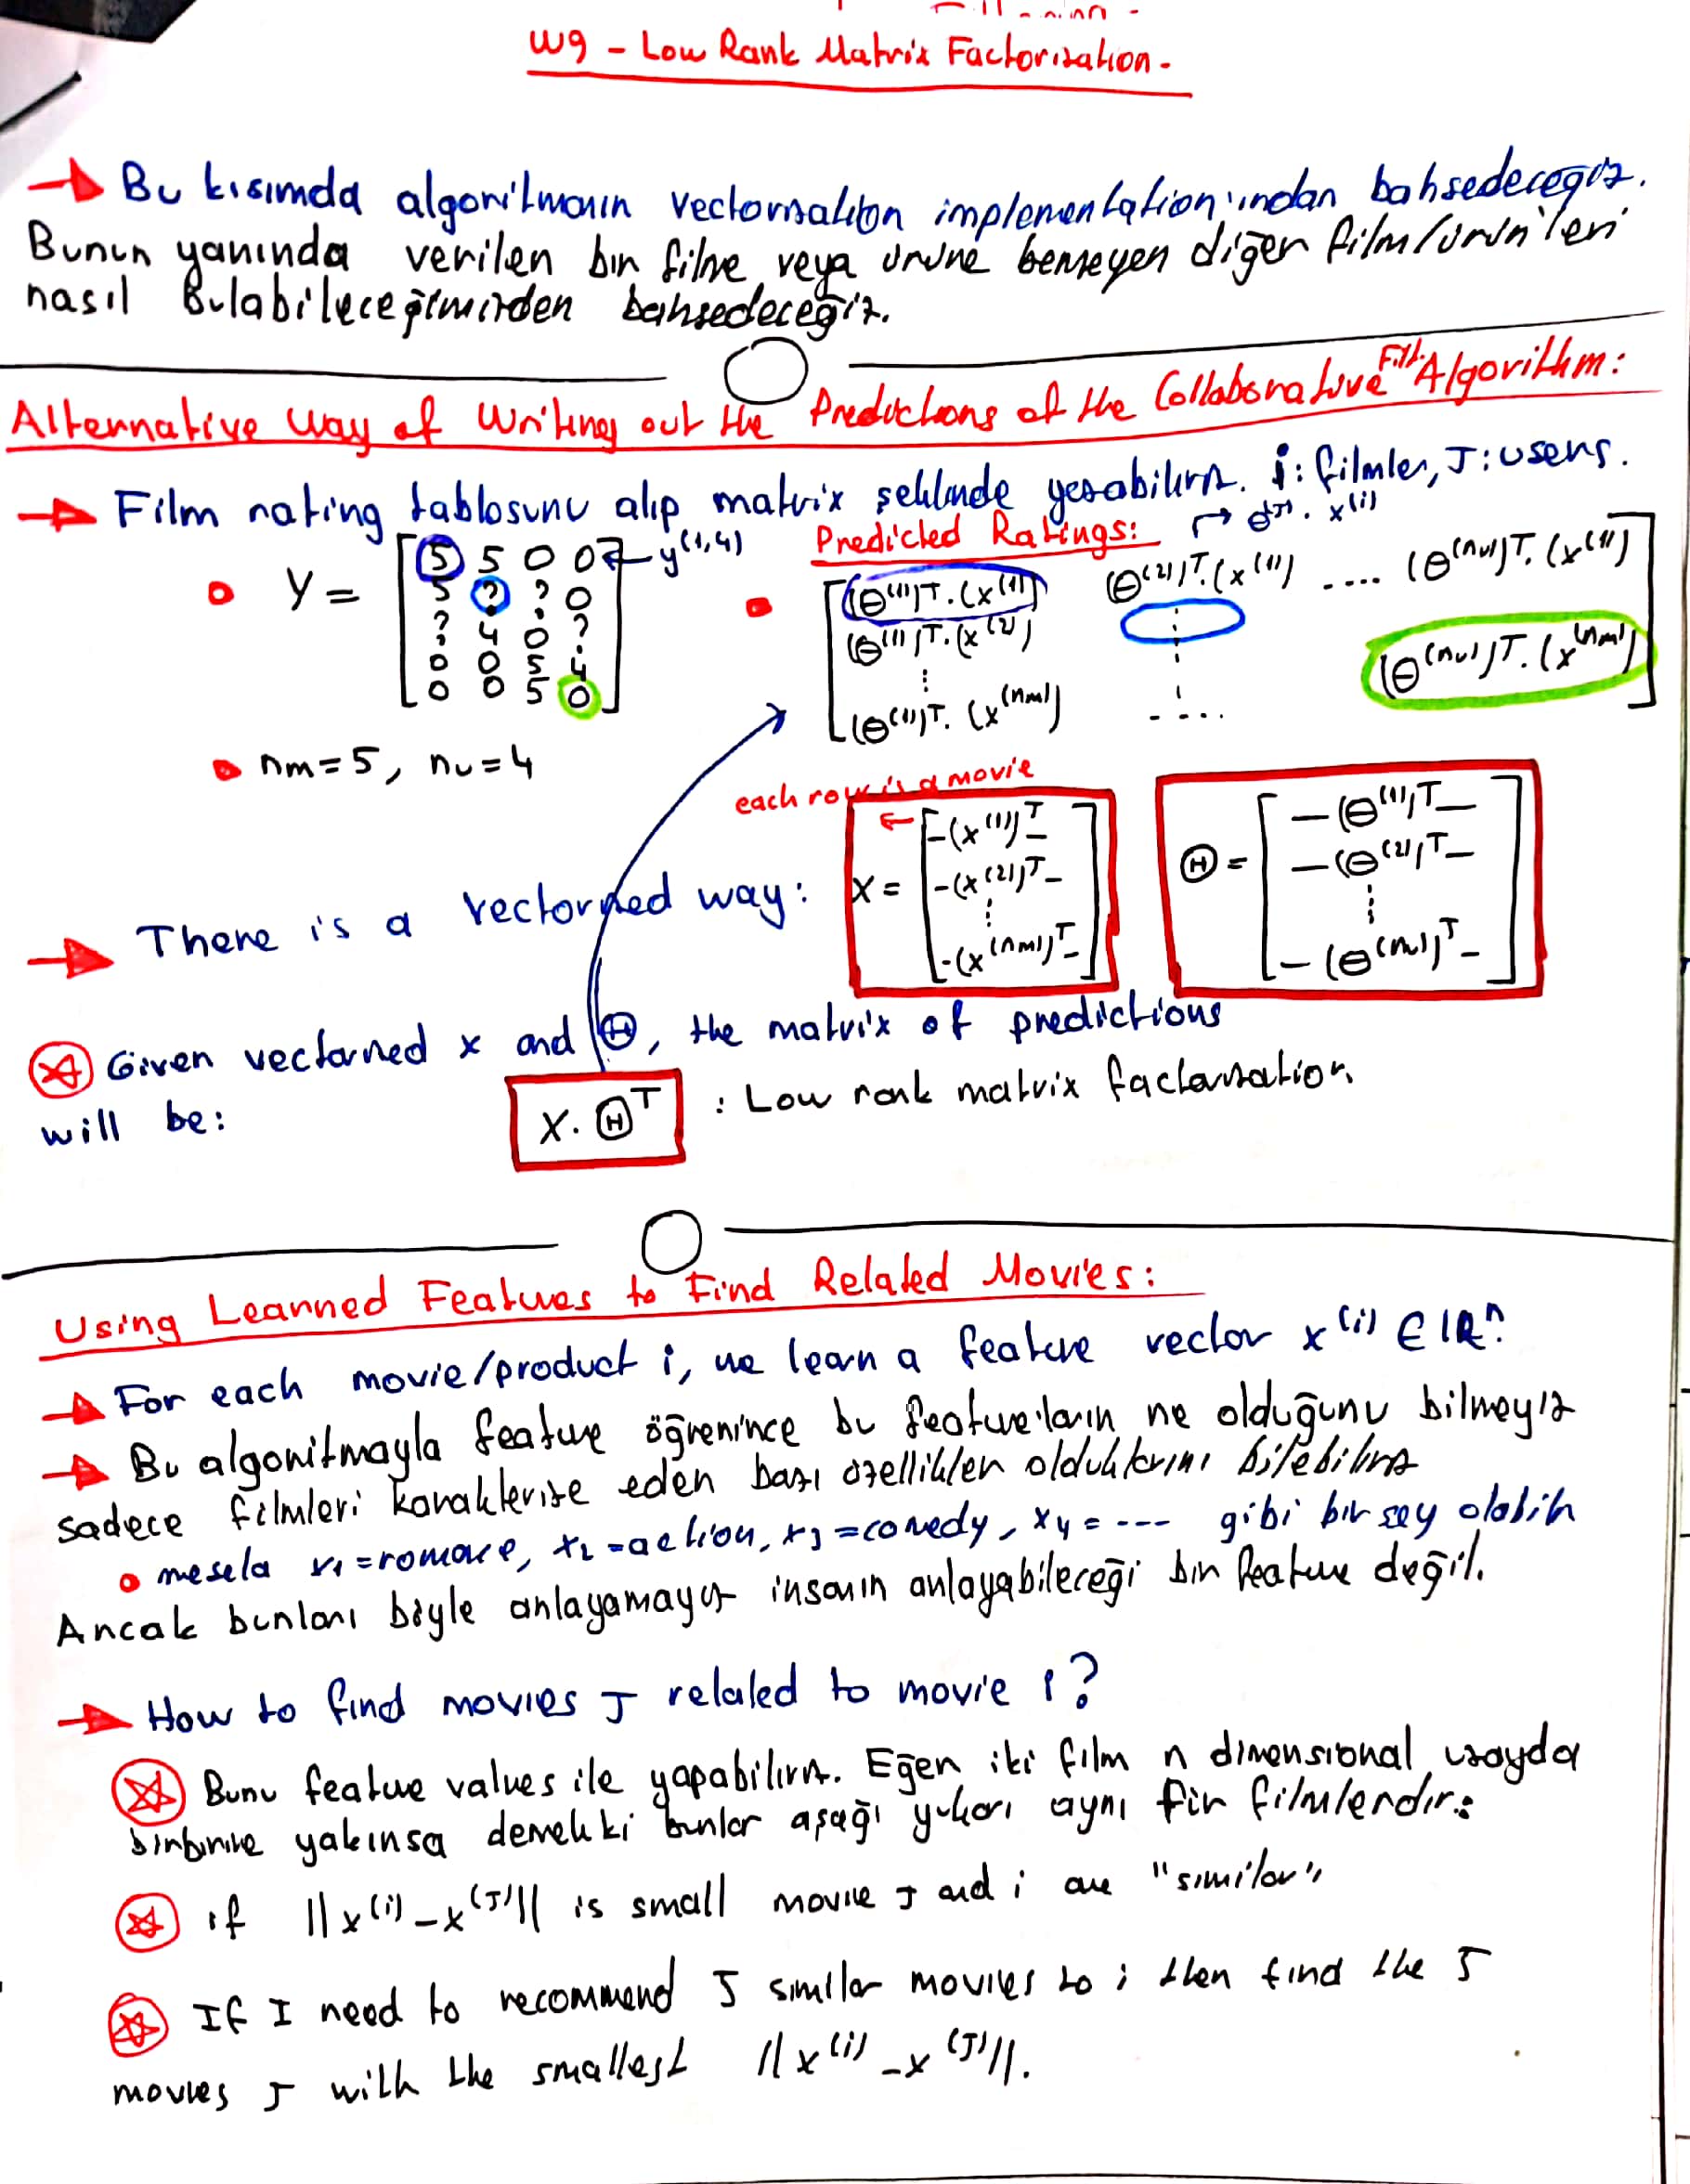 W9 - Low Rank Matrix Factorization -
→ Bu kısımda algoritmanın vectorization implementation'ından bahsedeceğiz.
Bunun yanında verilen bir filme veya ürüne benzeyen diğer film/ürünleri
nasıl bulabileceğimizden bahsedeceğiz.
Alternative Way of Writing out the Predictions of the Collaborative Filt. Algorithm:
→ Film rating tablosunu alıp matrix şeklinde yazabiliriz. i: filmler, J: users.
Predicted Ratings: → θ^(J). x^(i)
Y = [5 5 0 0 ← y^(1,4)
5 ? ? 0
? 4 0 ?
0 0 5 4
0 0 5 0]
[(θ^(1))^T.(x^(1)) (θ^(2))^T.(x^(1)) .... (θ^(nu))^T.(x^(1))
(θ^(1))^T.(x^(2))
⋮
(θ^(1))^T.(x^(nm)) .... (θ^(nu))^T.(x^(nm))]
nm = 5, nu = 4
each row is a movie
→ There is a vectorized way:
X = [-(x^(1))^T-
-(x^(2))^T-
⋮
-(x^(nm))^T-]
Θ = [-(θ^(1))^T-
-(θ^(2))^T-
⋮
-(θ^(nu))^T-]
Given vectorized x and Θ, the matrix of predictions
will be: X.Θ^T : Low rank matrix factorization
Using Learned Features to Find Related Movies:
→ For each movie/product i, we learn a feature vector x^(i) ∈ IR^n.
→ Bu algoritmayla feature öğrenince bu feature'ların ne olduğunu bilmeyiz
sadece filmleri karakterize eden bazı özellikler olduklarını bilebiliriz
mesela x1=romance, x2=action, x3=comedy, x4=--- gibi bir şey olabilir
Ancak bunları böyle anlayamayız insanın anlayabileceği bir feature değil.
→ How to find movies J related to movie i?
Bunu feature values ile yapabiliriz. Eğer iki film n dimensional uzayda
birbirine yakınsa demekki bunlar aşağı yukarı aynı tür filmlerdir:
if ||x^(i) - x^(J)|| is small movie J and i are "similar"
If I need to recommend 5 similar movies to i then find the 5
movies J with the smallest ||x^(i) - x^(J)||.